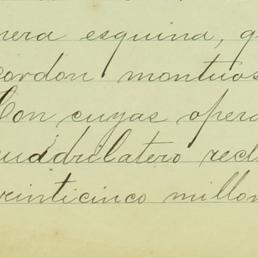 mera esquina, q
cordon montuos
Con cuyas opera
cuadrilatero rect
veinticinco millon